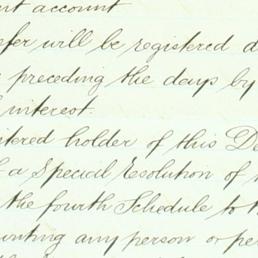 nt account
fer will be registered d
preceding the days by
interest.
tered holder of this De
f a Special Resolution of t
the fourth Schedule to t
unting any person or pe